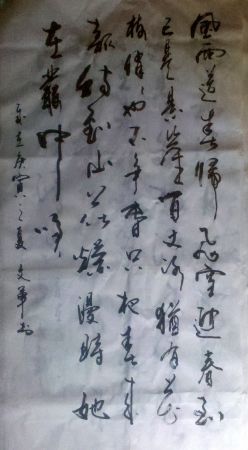 風雨送春歸飛雪迎春到
已是懸崖百丈冰猶有花
枝俏俏也不爭春只把春來
報待到山花爛漫時她
在叢中笑
歲在庚寅之夏文華書